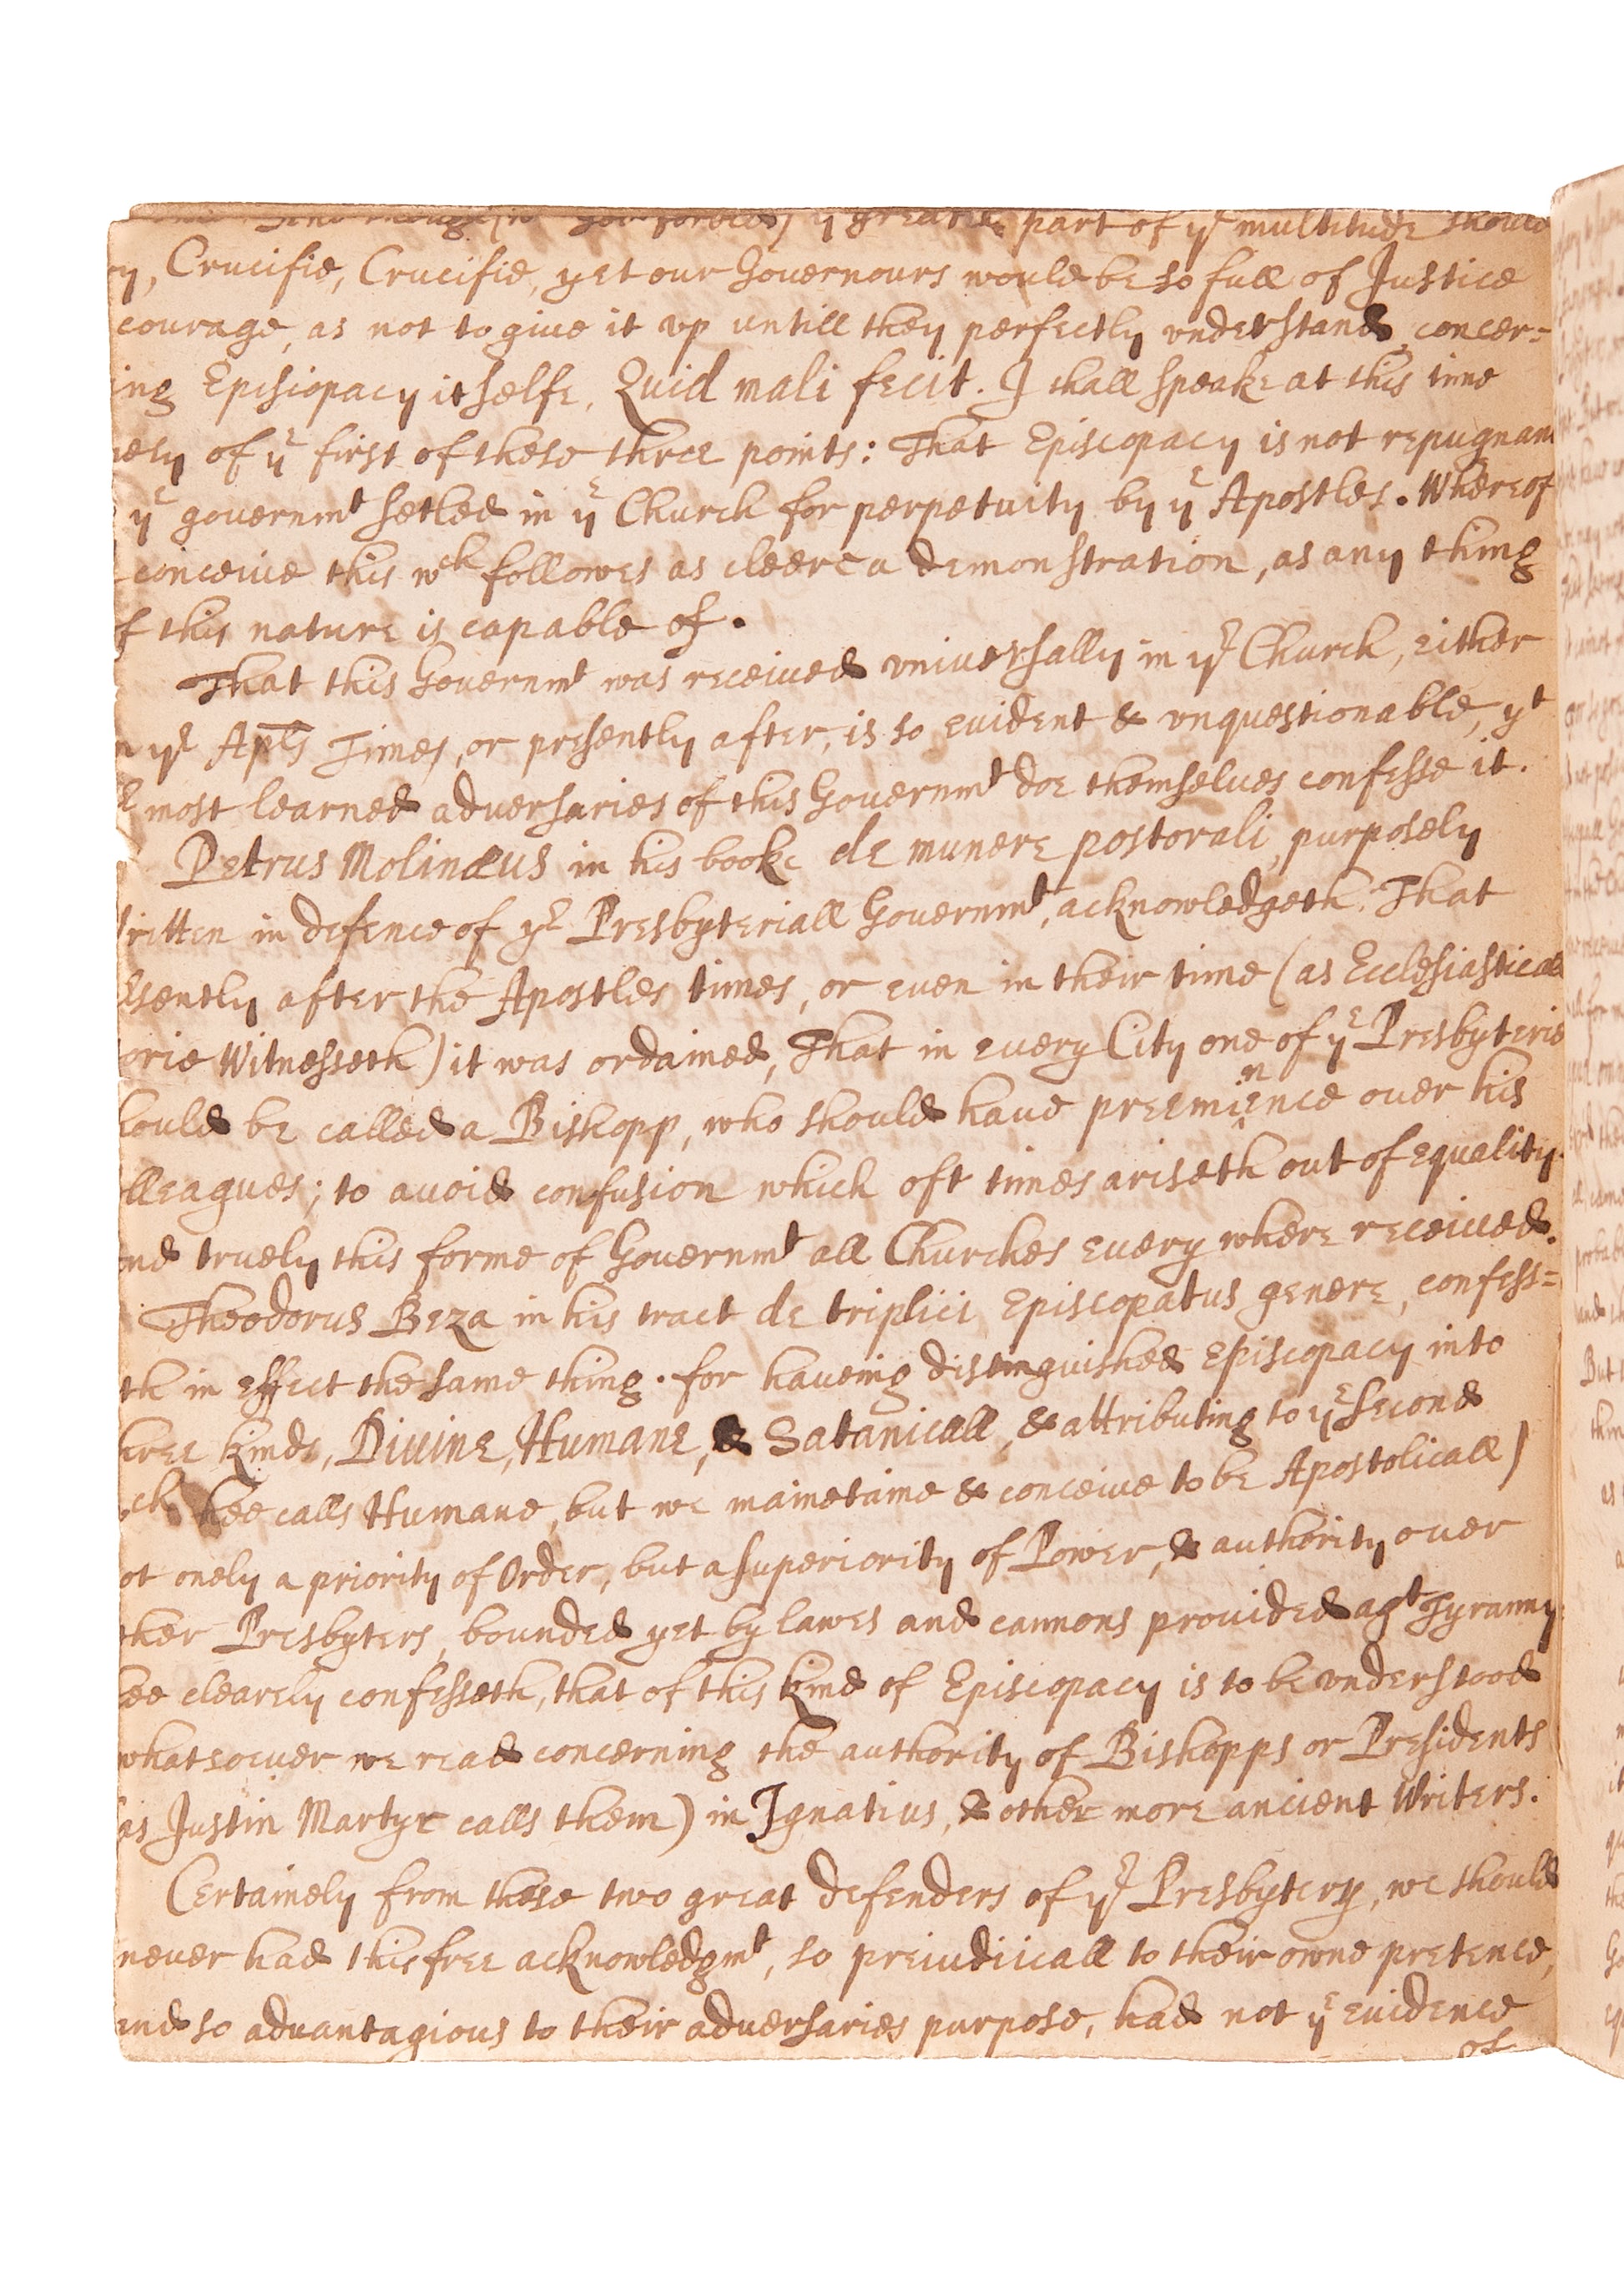 part of yᵉ multitude should
ry, Crucifie, Crucifie, yet our Governours would be so full of Justice
courage, as not to giue it vp untill they perfectly vnderstand, concer=
ing Episcopacy it selfe, Quid mali fecit. I shall speake at this time
nely of yᵉ first of these three points: That Episcopacy is not repugnant
yᵉ governmᵗ setled in yᵉ Church for perpetuity by yᵉ Apostles. Whereof
conceive this wᶜʰ followes as cleere a demonstration, as any thing
f this nature is capable of.
That this Governmᵗ was received vniversally in yᵉ Church, either
n yᵉ Apᵗˡˢ Times, or presently after, is so evident & vnquestionable, yᵗ
ᵉ most learned adversaries of this Governmᵗ doe themselves confesse it.
Petrus Molinæus in his booke de munere pastorali, purposely
ritten in defence of yᵉ Presbyteriall Governmᵗ, acknowledgeth, That
esently after the Apostles times, or even in their time (as Ecclesiasticall
orie Witnesseth) it was ordained, That in every City one of yᵉ Presbyterie
hould be called a Bishopp, who should have preemiⁱⁿence over his
lleagues; to avoid confusion which oft times ariseth out of equality.
nd truely this forme of Governmᵗ all Churches every where received.
Theodorus Beza in his tract de triplici Episcopatus genere, confess=
th in effect the same thing. for haveing distinguished Episcopacy into
hree kinds, Divine, Humane, & Satanicall, & attributing to yᵉ second
ch hee calls Humane, but we mainetaine & conceive to be Apostolicall)
ot onely a priority of Order, but a superiority of Power, & authority over
ther Presbyters, bounded yet by lawes and cannons provided agᵗ Tyranny:
hee clearely confesseth, that of this kind of Episcopacy is to be vnderstood
whatsoever we read concerning the authority of Bishopps or Presidents
(as Justin Martyr calls them) in Ignatius, & other more ancient Writers.
Certainely from these two great defenders of yᵉ Presbytery, we should
never had this free acknowledgmᵗ, so preiudiciall to their owne pretence,
and so advantagious to their adversaries purpose, had not yᵉ evidence
of